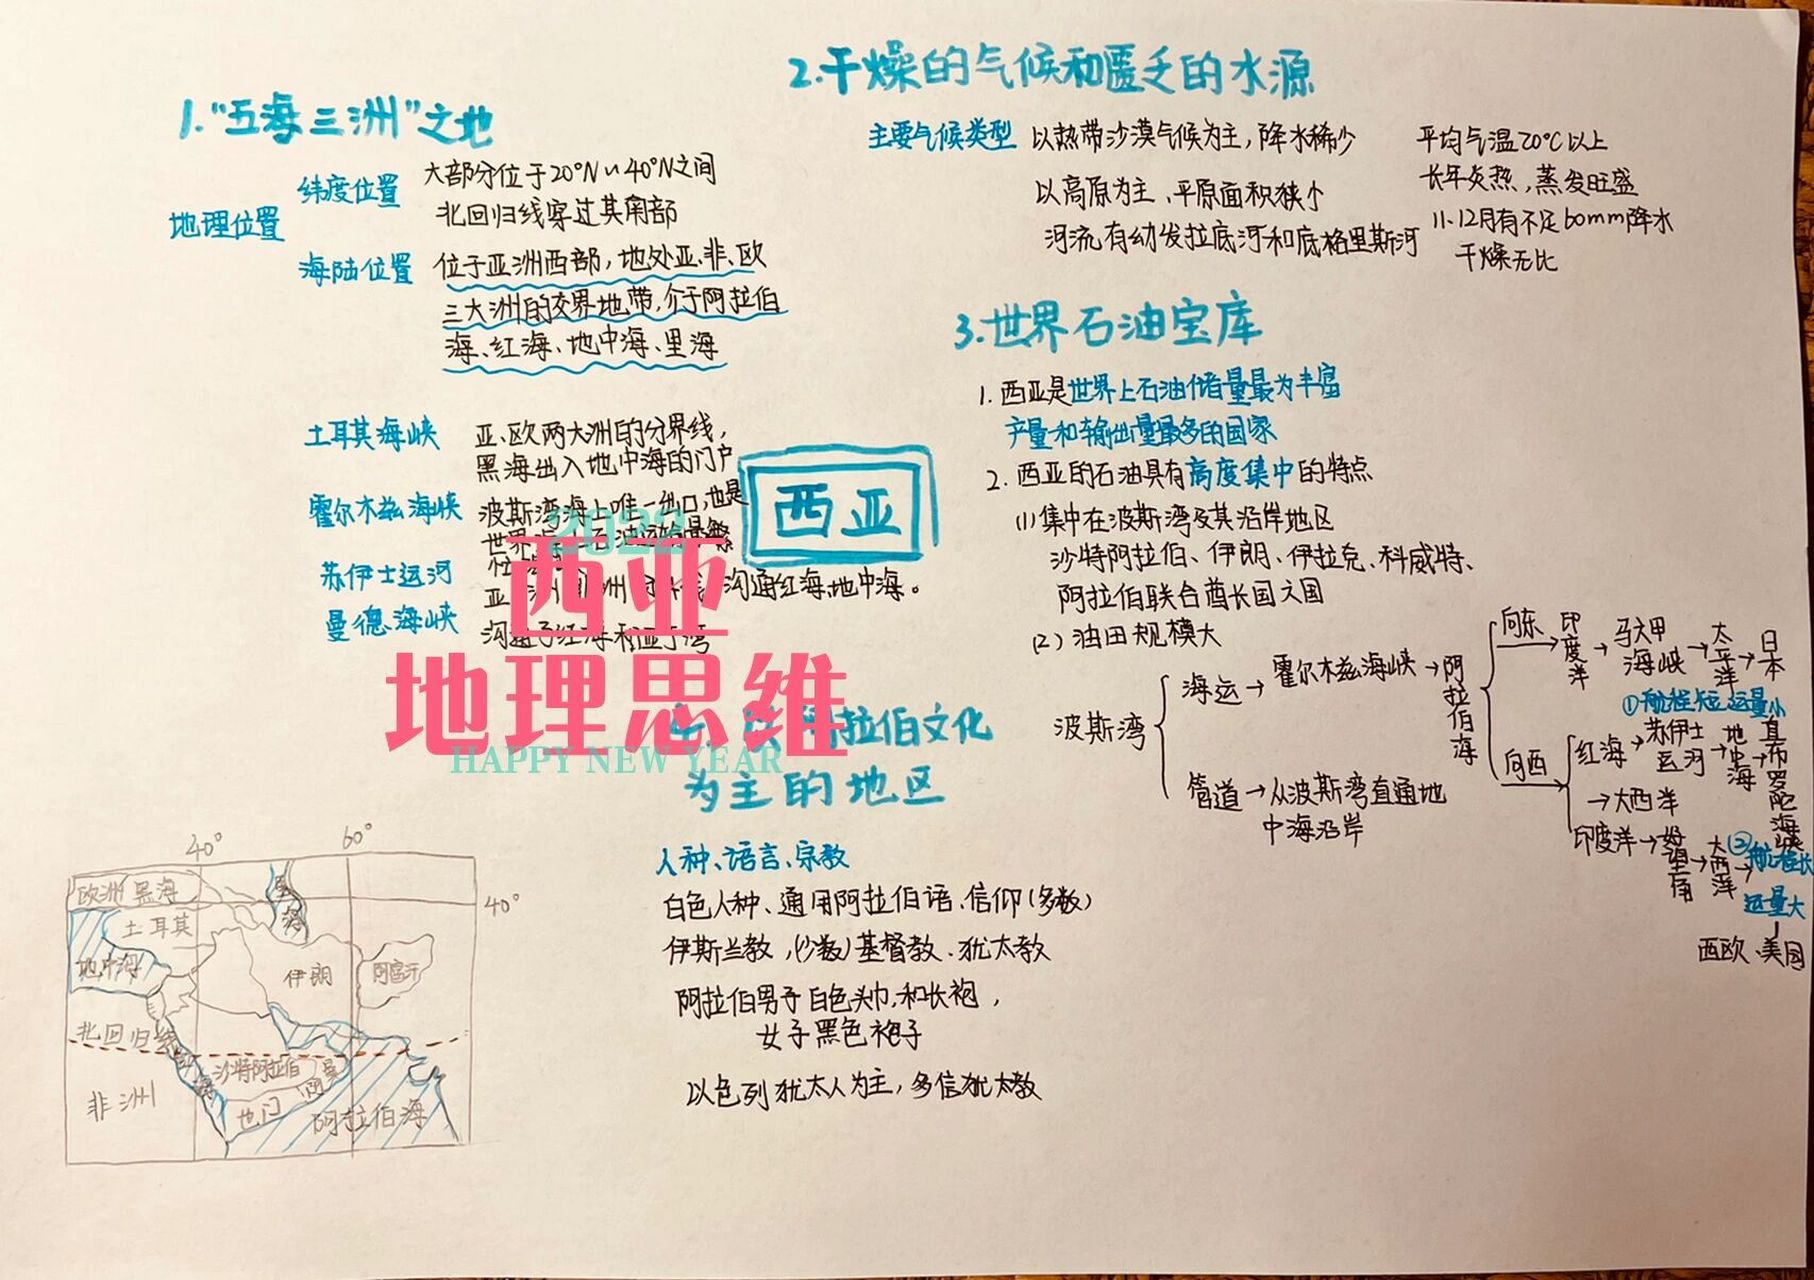 1.“五海三洲”之地
地理位置
纬度位置
大部分位于20°N~40°N之间
北回归线穿过其南部
海陆位置
位于亚洲西部,地处亚、非、欧
三大洲的交界地带,介于阿拉伯
海、红海、地中海、里海
土耳其海峡
亚、欧两大洲的分界线,
黑海出入地中海的门户
霍尔木兹海峡
波斯湾海上唯一出口,也是
世界
苏伊士运河
沟通红海、地中海。
曼德海峡
2022
西亚
地理思维
HAPPY NEW YEAR
西亚
2.干燥的气候和匮乏的水源
主要气候类型
以热带沙漠气候为主,降水稀少
以高原为主、平原面积狭小
河流有幼发拉底河和底格里斯河
平均气温20℃以上
长年炎热,蒸发旺盛
11、12月有不足60mm降水
干燥无比
3.世界石油宝库
1.西亚是世界上石油储量最为丰富
产量和输出量最多的国家
2.西亚的石油具有高度集中的特点
(1)集中在波斯湾及其沿岸地区
沙特阿拉伯、伊朗、伊拉克、科威特、
阿拉伯联合酋长国文国
(2)油田规模大
波斯湾
海运→霍尔木兹海峡→阿拉伯海
向东→印度洋→马六甲海峡→太平洋→日本
①航程短运量小
向西→
红海→苏伊士运河→地中海→直布罗陀海峡
→大西洋
印度洋→好望角→大西洋→
②航程长
运量大
西欧、美国
管道→从波斯湾直通地
中海沿岸
拉伯文化
为主的地区
人种、语言、宗教
白色人种、通用阿拉伯语、信仰(多数)
伊斯兰教,(少数)基督教、犹太教
阿拉伯男子白色头巾,和长袍,
女子黑色袍子
以色列犹太人为主,多信犹太教
40°
60°
40°
欧洲
黑海
里海
土耳其
地中海
伊朗
阿富汗
北回归线
红海
沙特阿拉伯
阿曼
非洲
也门
阿拉伯海